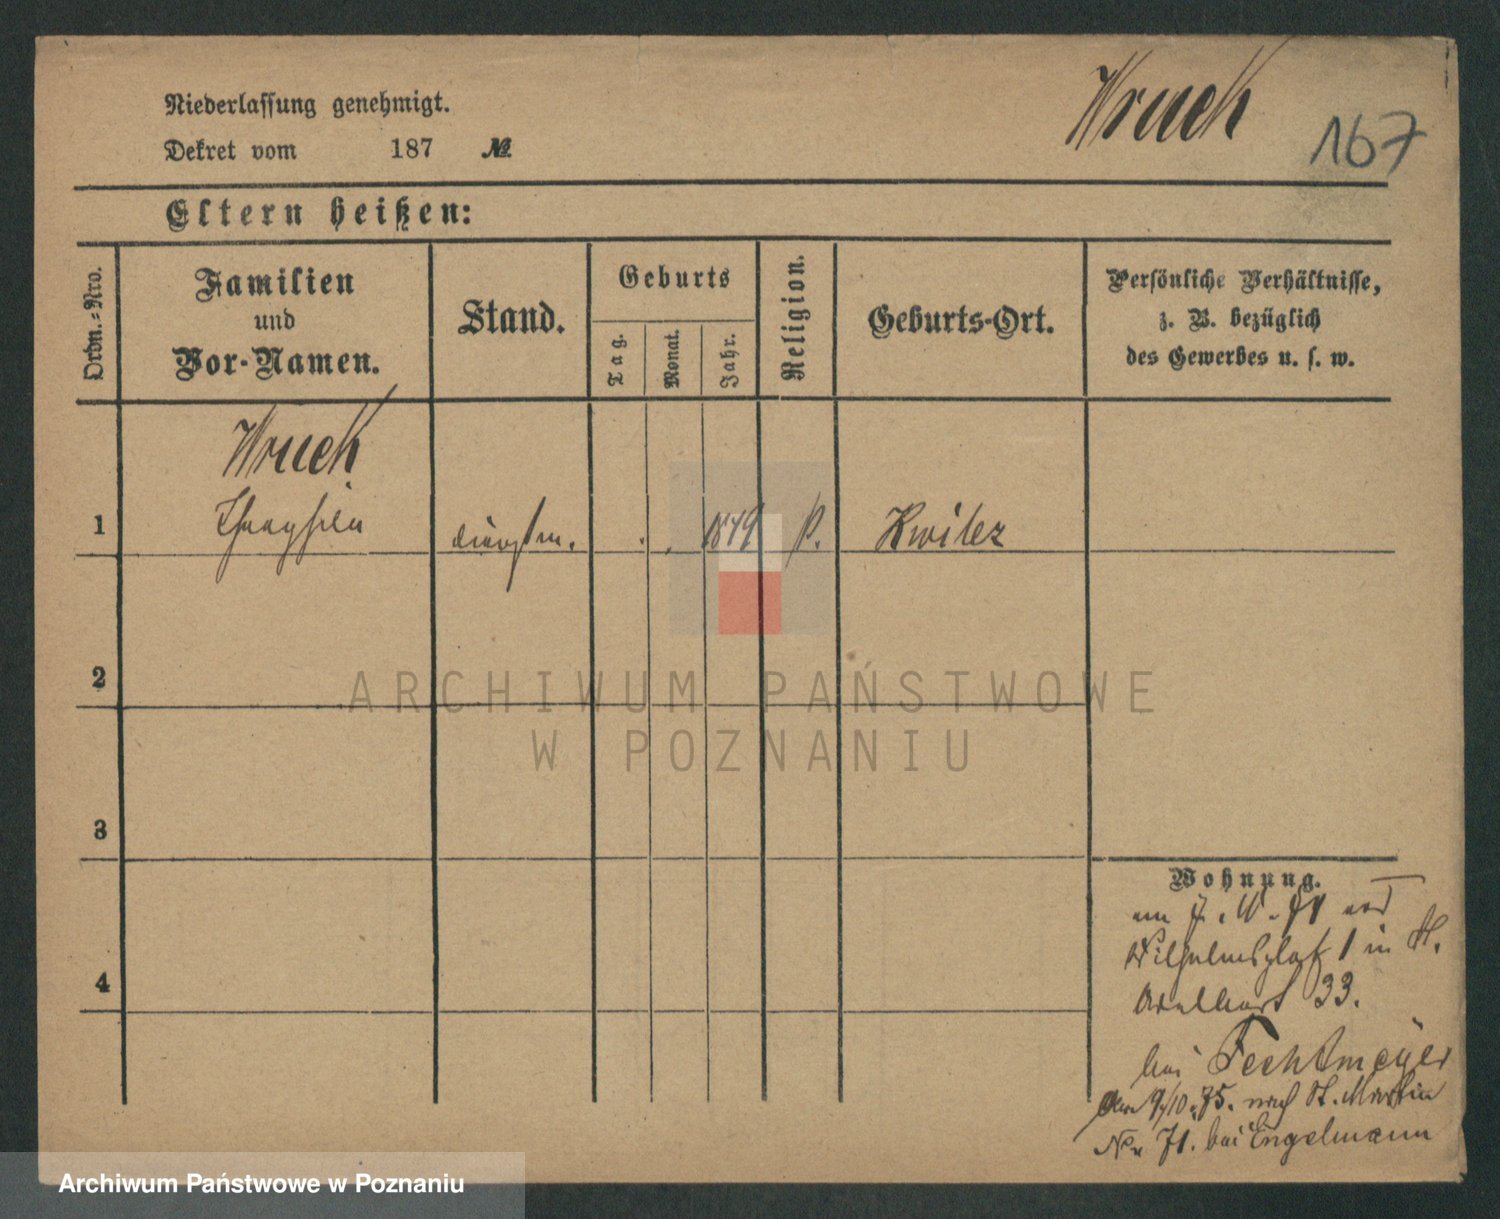 Niederlassung genehmigt.
Wruck
167
Dekret vom 187 №
Eltern heißen:
Ordn.-Nro.
Familien
und
Vor-Namen.
Stand.
Geburts
Tag.
Monat.
Jahr.
Religion.
Geburts-Ort.
Persönliche Verhältnisse,
z. B. bezüglich
des Gewerbes u. s. w.
Wruck
1 1849 Kwilcz
2
3
4
Wohnung.
Wilhelmsplatz 1 in St.
Adalbert 33.
bei Fechtmeyer
9/10. 75. nach St. Martin
No. 71. bei Engelmann
ARCHIWUM PAŃSTWOWE
W POZNANIU
Archiwum Państwowe w Poznaniu